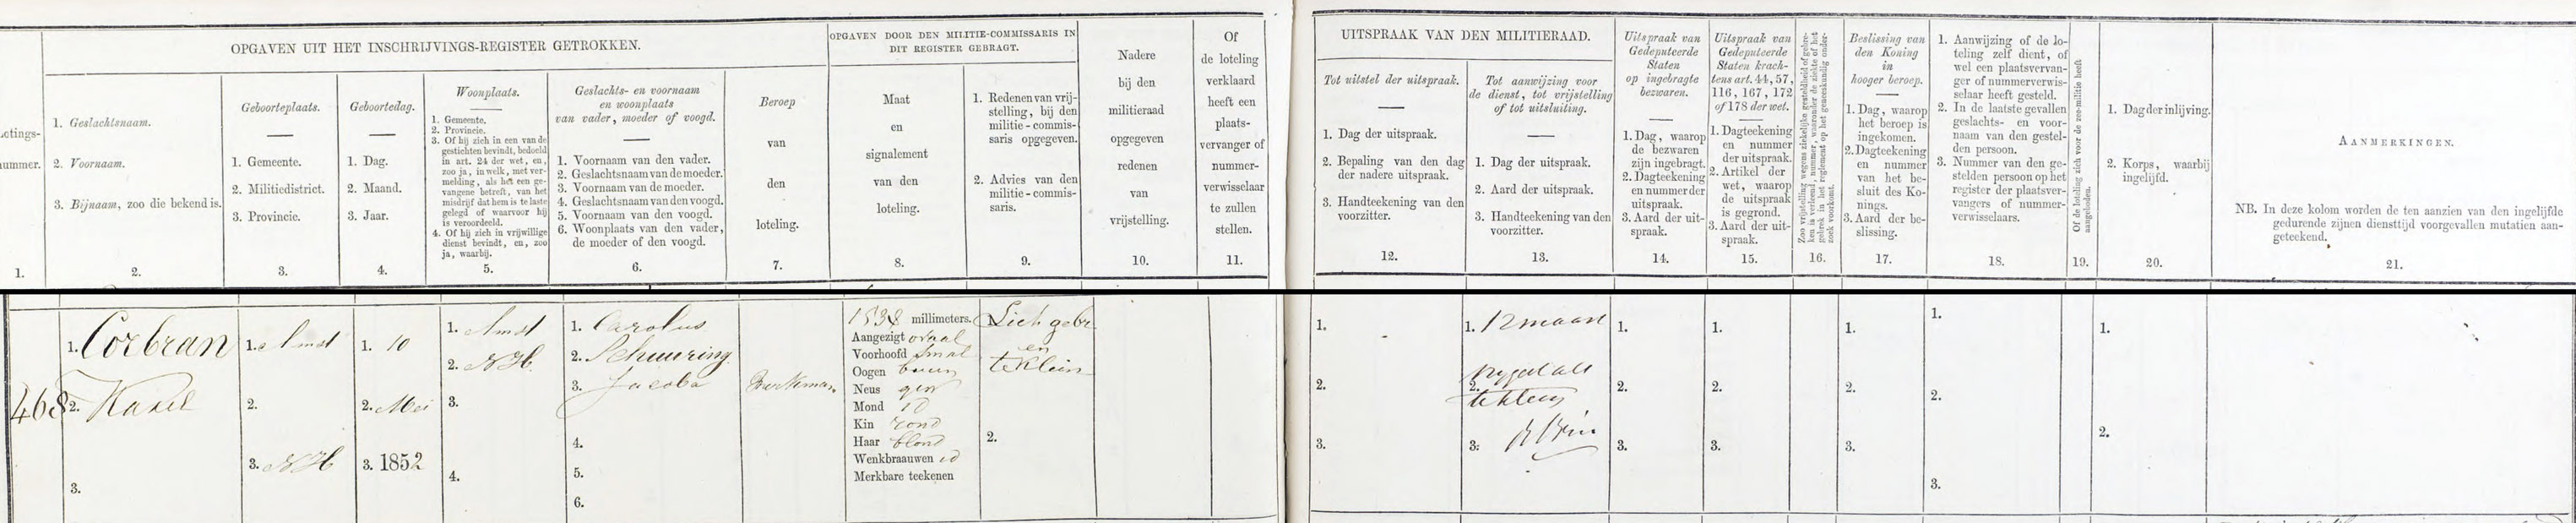 OPGAVEN UIT HET INSCHRIJVINGS-REGISTER GETROKKEN.
OPGAVEN DOOR DEN MILITIE-COMMISSARIS IN
DIT REGISTER GEBRAGT.
Nadere
bij den
militieraad
opgegeven
redenen
van
vrijstelling.
10.
Of
de loteling
verklaard
heeft een
plaats-
vervanger of
nummer-
verwisselaar
te zullen
stellen.
11.
otings-
ummer.
1.
1. Geslachtsnaam.
2. Voornaam.
3. Bijnaam, zoo die bekend is.
2.
Geboorteplaats.
1. Gemeente.
2. Militiedistrict.
3. Provincie.
3.
Geboortedag.
1. Dag.
2. Maand.
3. Jaar.
4.
Woonplaats.
1. Gemeente.
2. Provincie.
3. Of hij zich in een van de
gestichten bevindt, bedoeld
in art. 24 der wet, en,
zoo ja, in welk, met ver-
melding, als het een ge-
vangene betreft, van het
misdrijf dat hem is te laste
gelegd of waarvoor hij
is veroordeeld.
4. Of hij zich in vrijwillige
dienst bevindt, en, zoo
ja, waarbij.
5.
Geslachts- en voornaam
en woonplaats
van vader, moeder of voogd.
1. Voornaam van den vader.
2. Geslachtsnaam van de moeder.
3. Voornaam van de moeder.
4. Geslachtsnaam van den voogd.
5. Voornaam van den voogd.
6. Woonplaats van den vader,
de moeder of den voogd.
6.
Beroep
van
den
loteling.
7.
Maat
en
signalement
van den
loteling.
8.
1. Redenen van vrij-
stelling, bij den
militie-commis-
saris opgegeven.
2. Advies van den
militie-commis-
saris.
9.
UITSPRAAK VAN DEN MILITIERAAD.
Tot uitstel der uitspraak.
1. Dag der uitspraak.
2. Bepaling van den dag
der nadere uitspraak.
3. Handteekening van den
voorzitter.
12.
Tot aanwijzing voor
de dienst, tot vrijstelling
of tot uitsluiting.
1. Dag der uitspraak.
2. Aard der uitspraak.
3. Handteekening van den
voorzitter.
13.
Uitspraak van
Gedeputeerde
Staten
op ingebragte
bezwaren.
1. Dag, waarop
de bezwaren
zijn ingebragt.
2. Dagteekening
en nummer der
uitspraak.
3. Aard der uit-
spraak.
14.
Uitspraak van
Gedeputeerde
Staten krach-
tens art. 44, 57,
116, 167, 172
of 178 der wet.
1. Dagteekening
en nummer
der uitspraak.
2. Artikel der
wet, waarop
de uitspraak
is gegrond.
3. Aard der uit-
spraak.
15.
Zoo vrijstelling wegens ziekelijke gesteldheid of gebre-
ken is verleend, nummer, waaronder de ziekte of het
gebrek in het reglement op het geneeskundig onder-
zoek voorkomt.
16.
Beslissing van
den Koning
in
hooger beroep.
1. Dag, waarop
het beroep is
ingekomen.
2. Dagteekening
en nummer
van het be-
sluit des Ko-
nings.
3. Aard der be-
slissing.
17.
1. Aanwijzing of de lo-
teling zelf dient, of
wel een plaatsvervan-
ger of nummerverwis-
selaar heeft gesteld.
2. In de laatste gevallen
geslachts- en voor-
naam van den gestel-
den persoon.
3. Nummer van den ge-
stelden persoon op het
register der plaatsver-
vangers of nummer-
verwisselaars.
18.
Of de loteling zich voor de zee-militie heeft
aangeboden.
19.
1. Dag der inlijving.
2. Korps, waarbij
ingelijfd.
20.
AANMERKINGEN.
NB. In deze kolom worden de ten aanzien van den ingelijfde
gedurende zijnen diensttijd voorgevallen mutatien aan-
geteekend.
21.
468
1. Corbran
2. Karel
3.
1. Amst
2.
3. N H
1. 10
2. Mei
3. 1852
1. Amst
2. N H.
3.
4.
1. Carolus
2. Schuuring
3. Jacoba
4.
5.
6.
1538 millimeters.
Aangezigt ovaal
Voorhoofd smal
Oogen
Neus
Mond id
Kin rond
Haar blond
Wenkbraauwen id
Merkbare teekenen
Lich gebr
en
te klein
2.
1.
2.
3.
1. 12 maart
2.
te klein
3.
1.
2.
3.
1.
2.
3.
1.
2.
3.
1.
2.
3.
1.
2.